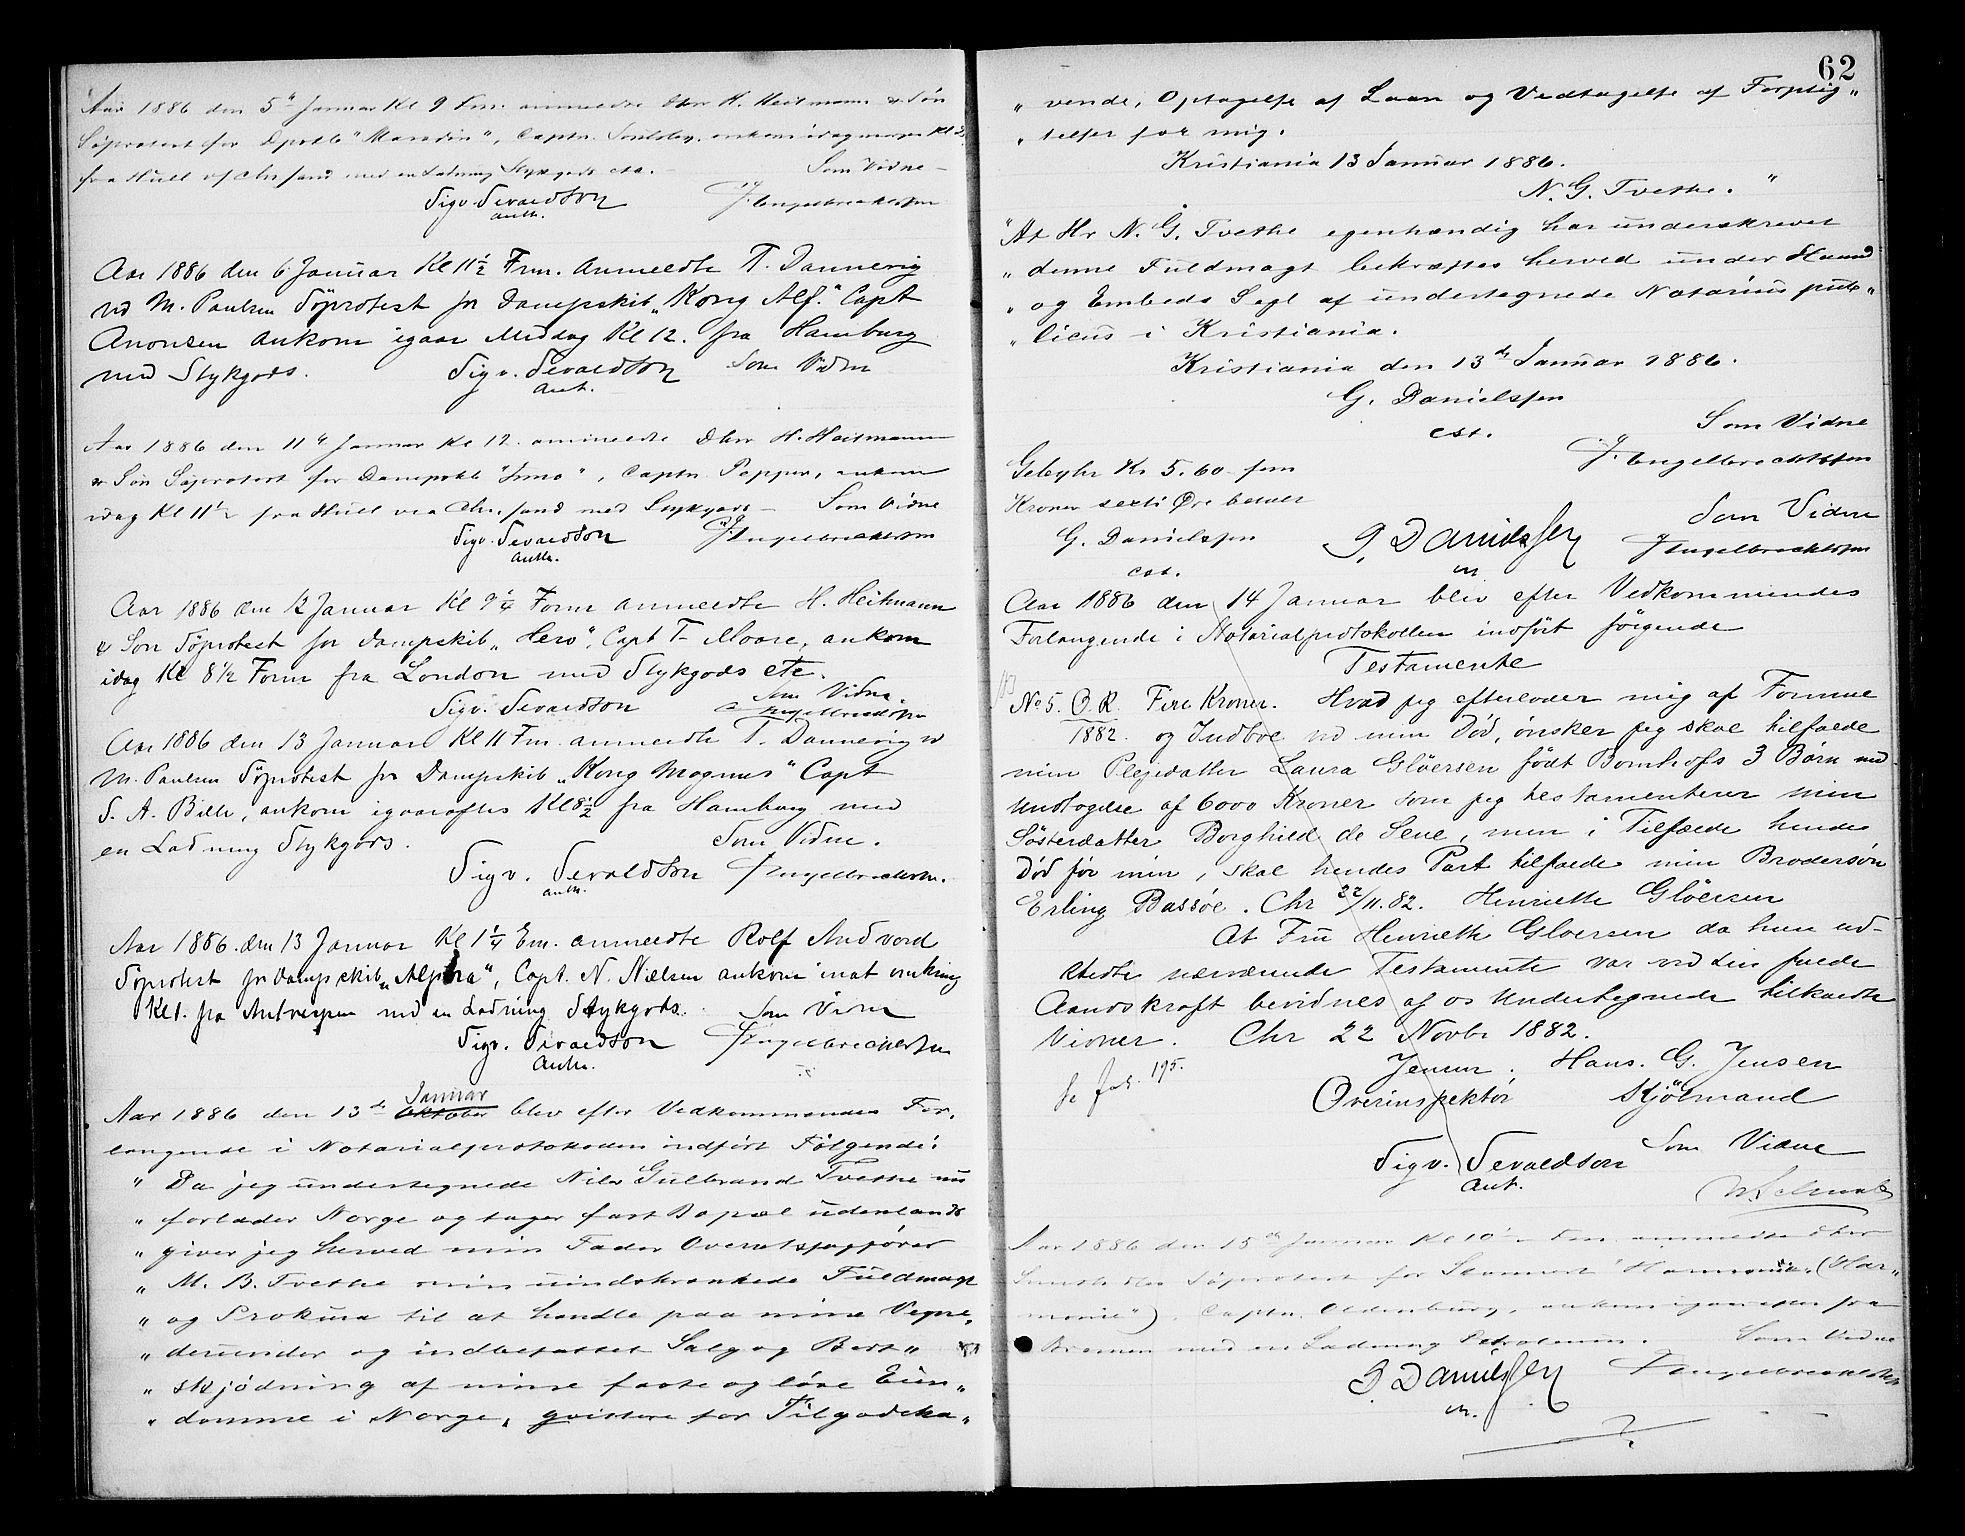 Aar 1886 den 5te Januar Kl 9 Fm. anmeldte Dhrr H. Heitmann & Søn
Søprotest for Dpskb " ", Captn. , ankom idag morges Kl
fra Hull via Chr.sand med en Ladning Stykgods etc. – Som Vidne –
Sigv. Sevaldson J. Engelbrechtsen
auth.
Aar 1886 den 6 Januar Kl 11½ Frm. anmeldte T. Dannevig
ved M. Paulsen Søprotest for Dampskib „Kong Alf." Capt
Anonsen ankom igaar Middag Kl 12. fra Hamburg
med Stykgods. Sigv. Sevaldson Som Vidne
aut.
Aar 1886 den 11te Januar Kl 12 anmeldte Dhrr H. Heitmann
& Søn Søprotest for Dampskb " ", Captn. Pepper, ankom
idag Kl 11½ fra Hull via Chr.sand med Stykgods – Som Vidne
Sigv. Sevaldson J. Engelbrechtsen
auth.
Aar 1886 den 12 Januar Kl 9¼ Form anmeldte H. Heitmann
& Søn Søprotest for Dampskib „Hero", Capt T. Moore, ankom
idag Kl 8½ Form fra London med Stykgods etc.
Sigv. Sevaldson Som Vidne.
J. Engelbrechtsen
Aar 1886 den 13 Januar Kl 11 Fm. anmeldte T. Dannevig v
M. Paulsen Søprotest for Dampskib „Kong Magnus" Capt
S. A. Bille, ankom igaaraftes Kl 8½ fra Hamburg med
en Ladning Stykgods. Som Vidne.
Sigv. Sevaldson J. Engelbrechtsen.
auth.
Aar 1886. den 13 Januar Kl 1¼ Em. anmeldte Rolf Andvord
Søprotest for Dampskib „Alpha", Capt. N. Nielsen ankom inat omkring
Kl 1. fra Antwerpen med en Ladning Stykgods. Som Vidne
Sigv. Sevaldson J. Engelbrechtsen
Auth.
Januar
Aar 1886 den 13de Oktober blev efter Vedkommendes For-
langende i Notarialprotokollen indført Følgende:
" Da jeg undertegnede Nils Gulbrand Tvethe nu
" forlader Norge og tager fast Bopæl udenlands
" giver jeg herved min Fader Overretssagfører
" M. B. Tvethe min uindskrænkede Fuldmagt
" og Prokura til at handle paa mine Vegne,
" derunder og indbefattet Salg og Bort"
" skjødning af mine faste og løse Eien"
" domme i Norge, qvittere for Tilgodeha"
62
" vende, Optagelse af Laan og Vedtagelse af Forplig"
" telser for mig.
Kristiania 13 Januar 1886.
N. G. Tvethe. "
"At Hr N. G. Tvethe egenhændig har underskrevet
" denne Fuldmagt bekræftes herved under Haand
" og Embeds Segl af undertegnede Notarius pub"
" licus i Kristiania.
Kristiania den 13de Januar 1886.
G. Danielssen
cst.
Som Vidne
J. Engelbrechtssen
Gebyhr Kr 5.60 – fem
Kroner sexti Øre betalt
G. Danielssen
cst.
G. Danielssen
Som Vidne
J. Engelbrechtssen
Aar 1886 den 14 Januar blev efter Vedkommendes
Forlangende i Notarialprotokollen indført følgende
Testamente
No 5. O. R. Fire Kroner. Hvad jeg efterlader mig af Formue
1882. og Indboe ved min Død, ønsker jeg skal tilfalde
min Plejedatter Laura Gløersen født Bomhoffs 3 Børn med
Undtagelse af 6000 Kroner som jeg testamenterer min
Søsterdatter Borghild de Seue, men i Tilfælde hendes
Død før min, skal hendes Part tilfalde min Brodersøn
Erling Bassøe. Chr 22/11.82. Henriette Gløersen
At Fru Henriette Gløersen da hun ud-
stedte nærværende Testamente var ved sin fulde
Aandskraft bevidnes af os Undertegnede tilkaldte
Vidner. Chr 22 Novbr 1882.
Jensen. Hans. G. Jensen
Overinspektør Skjølmand
se fol. 195.
Sigv. Sevaldson Som Vidne
aut.
Aar 1886 den 15de Januar Kl 10½ Fm. anmeldte Dhrr
Søprotest for "Harmonie" (Har"
monie"), Captn. Oldenburg, ankom igaaraftes fra
Bremen med en Ladning Petroleum. Som Vidne
G. Danielssen J. Engelbrechtssen